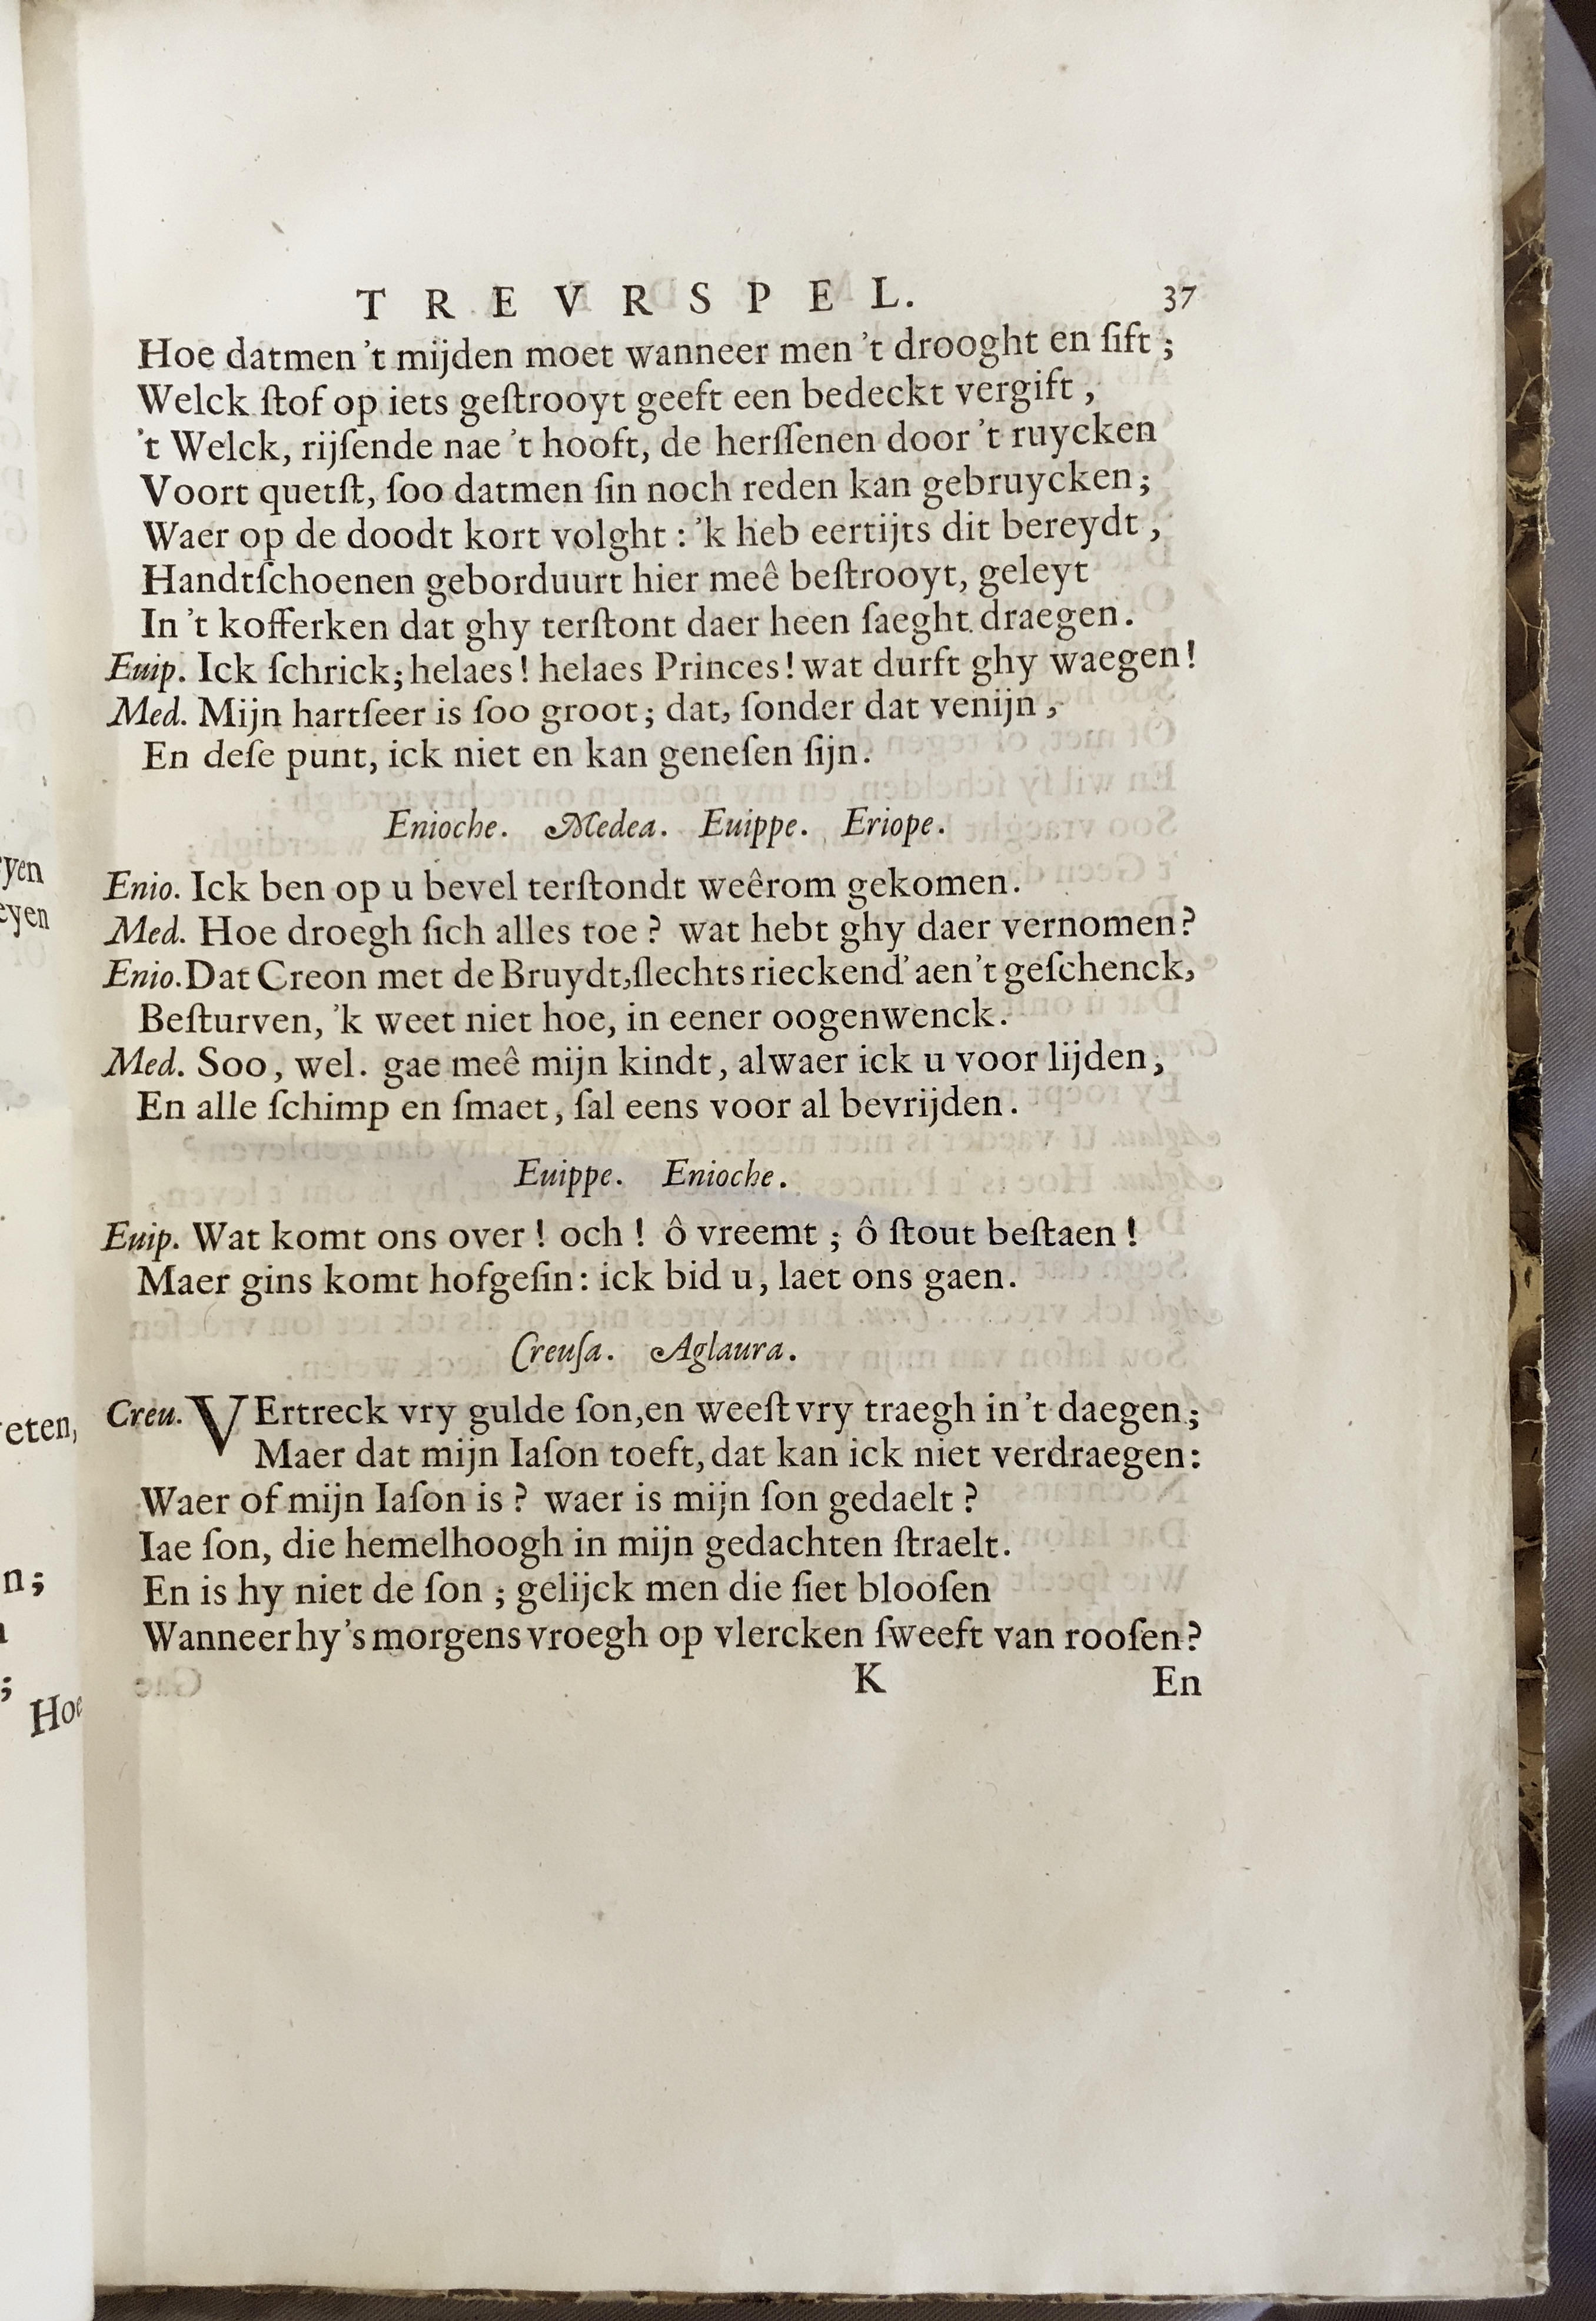 TREVRSPEL. 37
Hoe datmen 't mijden moet wanneer men 't drooght en ſift ;
Welck ſtof op iets geſtrooyt geeft een bedeckt vergift ,
't Welck, rijſende nae 't hooft, de herſſenen door 't ruycken
Voort quetſt, ſoo datmen ſin noch reden kan gebruycken ;
Waer op de doodt kort volght : 'k heb eertijts dit bereydt ,
Handtſchoenen geborduurt hier meê beſtrooyt, geleyt
In 't kofferken dat ghy terſtont daer heen ſaeght draegen.
Euip. Ick ſchrick; helaes ! helaes Princes ! wat durft ghy waegen !
Med. Mijn hartſeer is ſoo groot ; dat, ſonder dat venijn ,
En deſe punt, ick niet en kan geneſen ſijn.
Enioche. Medea. Euippe. Eriope.
Enio. Ick ben op u bevel terſtondt weêrom gekomen.
Med. Hoe droegh ſich alles toe ? wat hebt ghy daer vernomen ?
Enio. Dat Creon met de Bruydt, ſlechts rieckend' aen 't geſchenck,
Beſturven, 'k weet niet hoe, in eener oogenwenck.
Med. Soo, wel. gae meê mijn kindt, alwaer ick u voor lijden,
En alle ſchimp en ſmaet, ſal eens voor al bevrijden.
Euippe. Enioche.
Euip. Wat komt ons over ! och ! ô vreemt ; ô ſtout beſtaen !
Maer gins komt hofgeſin : ick bid u, laet ons gaen.
Creuſa. Aglaura.
Creu. VErtreck vry gulde ſon, en weeſt vry traegh in 't daegen ;
Maer dat mijn Iaſon toeft, dat kan ick niet verdraegen :
Waer of mijn Iaſon is ? waer is mijn ſon gedaelt ?
Iae ſon, die hemelhoogh in mijn gedachten ſtraelt.
En is hy niet de ſon ; gelijck men die ſiet blooſen
Wanneer hy 's morgens vroegh op vlercken ſweeft van rooſen ?
K En
yen
eyen
eten,
n;
;
Hoe